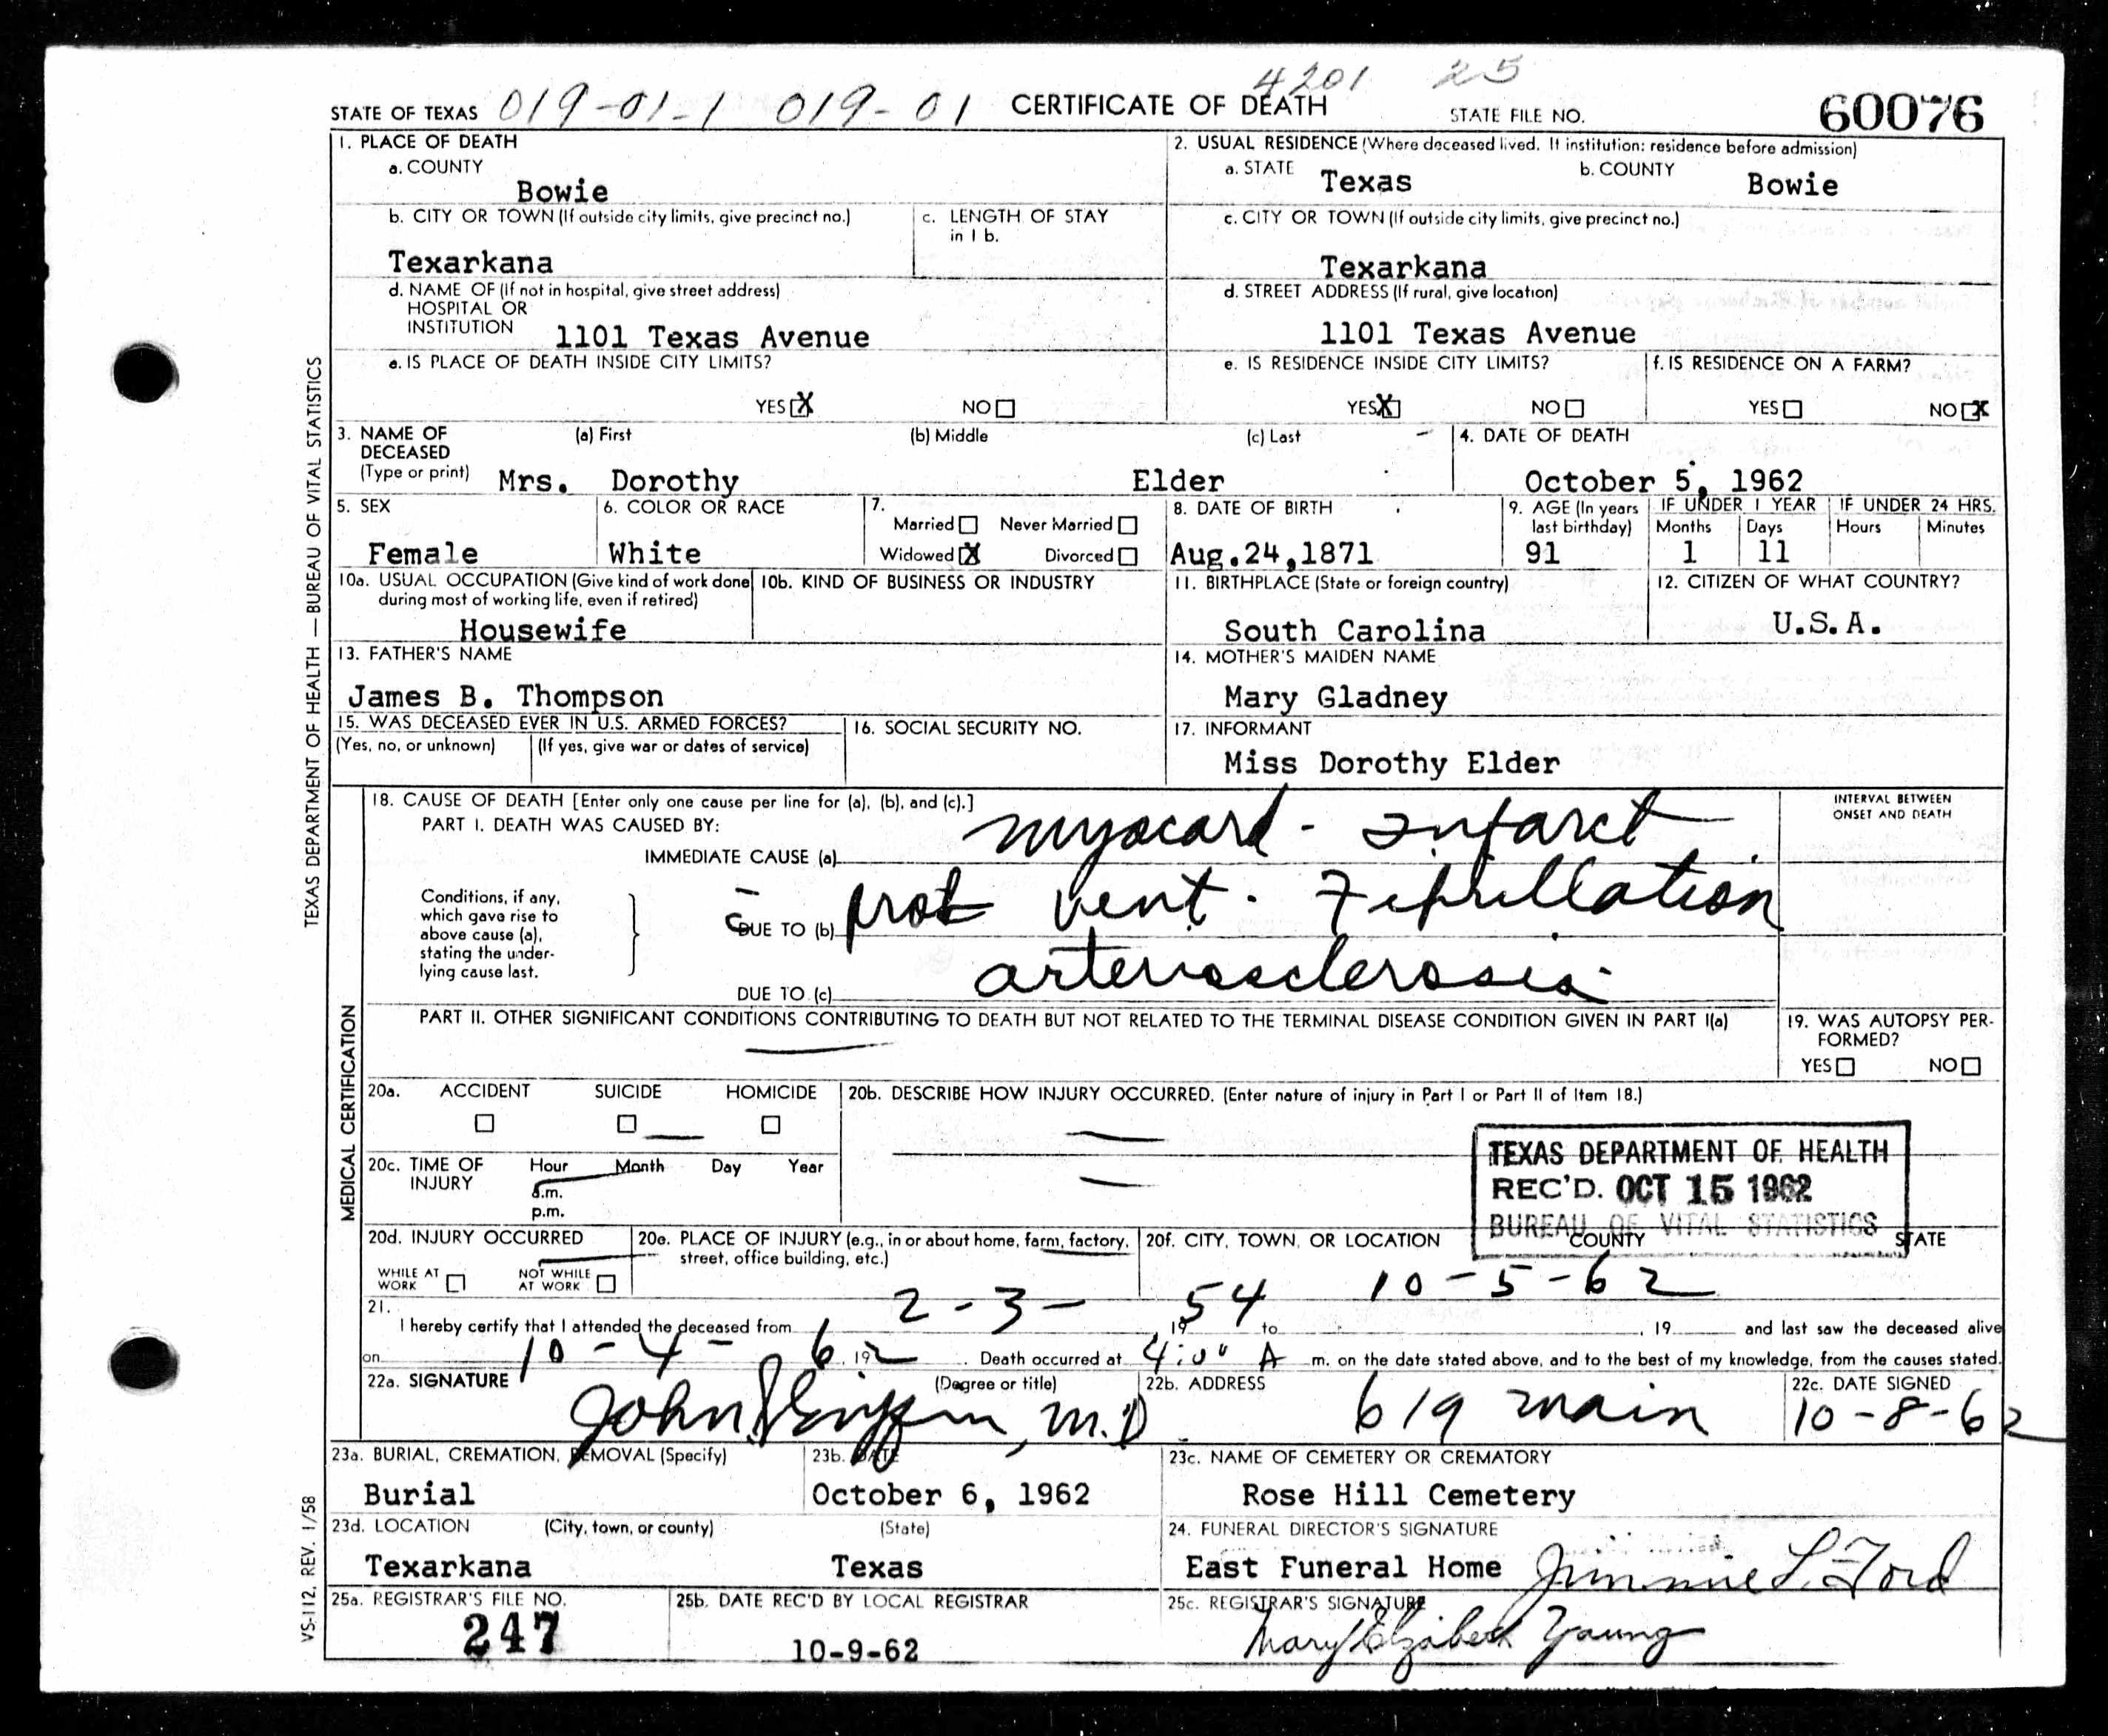 4201 25
STATE OF TEXAS 019-01-1 019-01 CERTIFICATE OF DEATH STATE FILE NO. 60076
1. PLACE OF DEATH
a. COUNTY
Bowie
b. CITY OR TOWN (If outside city limits, give precinct no.)
c. LENGTH OF STAY
in 1 b.
Texarkana
d. NAME OF (If not in hospital, give street address)
HOSPITAL OR
INSTITUTION 1101 Texas Avenue
e. IS PLACE OF DEATH INSIDE CITY LIMITS?
YES X NO
2. USUAL RESIDENCE (Where deceased lived. If institution: residence before admission)
a. STATE Texas b. COUNTY Bowie
c. CITY OR TOWN (If outside city limits, give precinct no.)
Texarkana
d. STREET ADDRESS (If rural, give location)
1101 Texas Avenue
e. IS RESIDENCE INSIDE CITY LIMITS?
YES X NO
f. IS RESIDENCE ON A FARM?
YES NO X
3. NAME OF
DECEASED
(Type or print)
(a) First (b) Middle (c) Last
Mrs. Dorothy Elder
4. DATE OF DEATH
October 5, 1962
5. SEX
Female
6. COLOR OR RACE
White
7.
Married Never Married
Widowed X Divorced
8. DATE OF BIRTH
Aug.24,1871
9. AGE (In years
last birthday)
91
IF UNDER 1 YEAR
Months Days
1 11
IF UNDER 24 HRS.
Hours Minutes
10a. USUAL OCCUPATION (Give kind of work done
during most of working life, even if retired)
Housewife
10b. KIND OF BUSINESS OR INDUSTRY
11. BIRTHPLACE (State or foreign country)
South Carolina
12. CITIZEN OF WHAT COUNTRY?
U.S.A.
13. FATHER'S NAME
James B. Thompson
14. MOTHER'S MAIDEN NAME
Mary Gladney
15. WAS DECEASED EVER IN U.S. ARMED FORCES?
(Yes, no, or unknown) (If yes, give war or dates of service)
16. SOCIAL SECURITY NO.
17. INFORMANT
Miss Dorothy Elder
18. CAUSE OF DEATH [Enter only one cause per line for (a), (b), and (c).]
PART I. DEATH WAS CAUSED BY:
IMMEDIATE CAUSE (a) myocard - Infarct
INTERVAL BETWEEN
ONSET AND DEATH
Conditions, if any,
which gave rise to
above cause (a),
stating the under-
lying cause last.
DUE TO (b) prob vent. Fibrillation
DUE TO (c) arteriosclerosis
PART II. OTHER SIGNIFICANT CONDITIONS CONTRIBUTING TO DEATH BUT NOT RELATED TO THE TERMINAL DISEASE CONDITION GIVEN IN PART I(a)
19. WAS AUTOPSY PER-
FORMED?
YES NO
20a. ACCIDENT SUICIDE HOMICIDE
20b. DESCRIBE HOW INJURY OCCURRED. (Enter nature of injury in Part I or Part II of Item 18.)
20c. TIME OF
INJURY
Hour Month Day Year
a.m.
p.m.
TEXAS DEPARTMENT OF HEALTH
REC'D. OCT 15 1962
BUREAU OF VITAL STATISTICS
20d. INJURY OCCURRED
WHILE AT
WORK
NOT WHILE
AT WORK
20e. PLACE OF INJURY (e.g., in or about home, farm, factory,
street, office building, etc.)
20f. CITY, TOWN, OR LOCATION COUNTY STATE
21.
I hereby certify that I attended the deceased from 2-3-, 19 54 to 10-5-62, 19 and last saw the deceased alive
on 10-4-6, 19 2. Death occurred at 4:00 A m. on the date stated above, and to the best of my knowledge, from the causes stated.
22a. SIGNATURE (Degree or title)
John , M.D.
22b. ADDRESS
619 Main
22c. DATE SIGNED
10-8-62
23a. BURIAL, CREMATION, REMOVAL (Specify)
Burial
23b. DATE
October 6, 1962
23c. NAME OF CEMETERY OR CREMATORY
Rose Hill Cemetery
23d. LOCATION (City, town, or county) (State)
Texarkana Texas
24. FUNERAL DIRECTOR'S SIGNATURE
East Funeral Home Jimmie L. Ford
25a. REGISTRAR'S FILE NO.
247
25b. DATE REC'D BY LOCAL REGISTRAR
10-9-62
25c. REGISTRAR'S SIGNATURE
Mary Elizabeth Young
TEXAS DEPARTMENT OF HEALTH — BUREAU OF VITAL STATISTICS
MEDICAL CERTIFICATION
VS-112, REV. 1/58